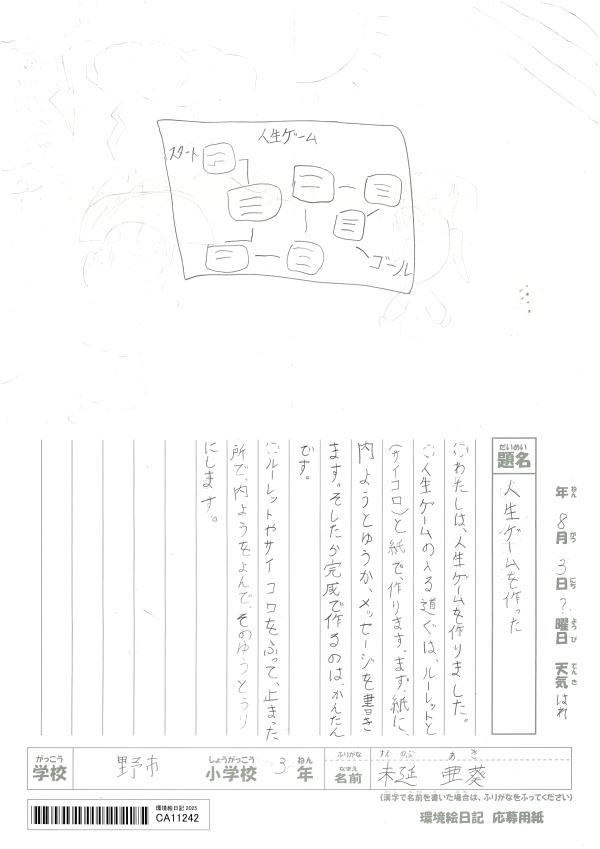 人生ゲーム
スタート
ゴール
だいめい
題名
人生ゲームを作った
年 8月 3日 ? 曜日 天気 はれ
ねん がつ にち ようび てんき
わたしは、人生ゲームを作りました。
人生ゲームのいる道ぐは、ルーレットと
(サイコロ)と紙で、作ります。まず、紙に、
内ようとゆうか、メッセージを書き
ます。そしたら完成で作るのは、かんたん
です。
ルーレットやサイコロをふって、止まった
所で、内ようをよんで、そのゆうとうり
にします。
がっこう
学校
野市
しょうがっこう
小学校
3
ねん
年
ふりがな
なまえ
名前
あき
亜葵
(漢字で名前を書いた場合は、ふりがなをふってください)
環境絵日記 2025
CA11242
環境絵日記 応募用紙